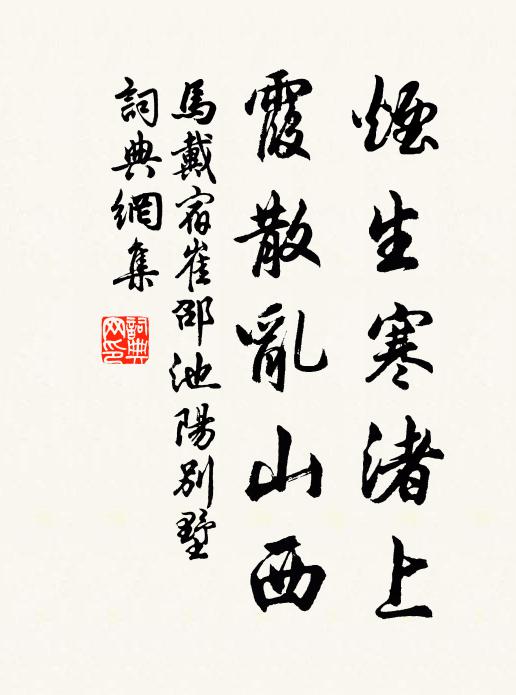 煙生寒渚上
霞散亂山西
馬戴宿崔邵池陽別墅
詞典網集
詞典网印